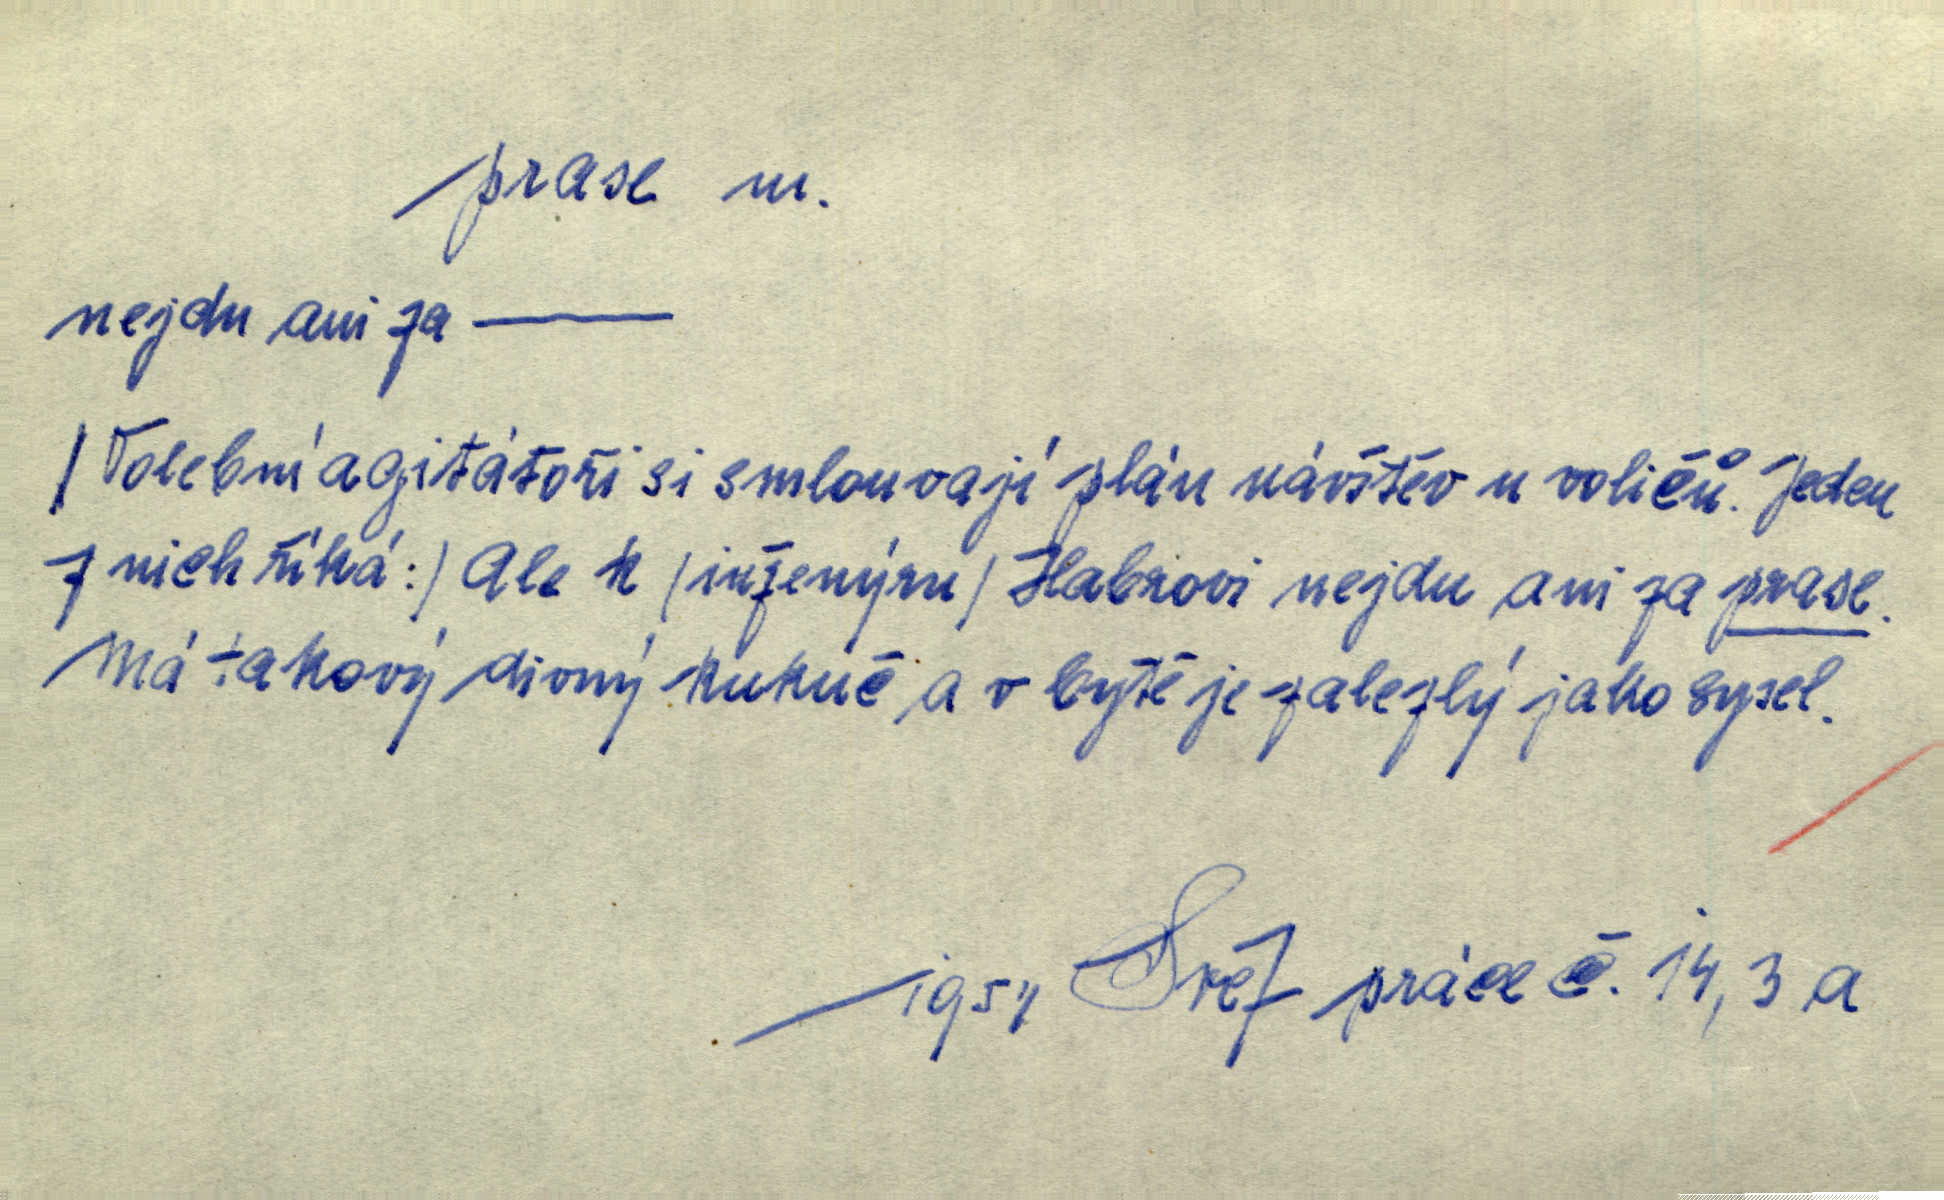 prase n.
nejdu ani za ———
/Volební agitátoři si smlouvají plán návštěv u voličů. Jeden
z nich říká:/ Ale k /inženýru/ Habrovi nejdu ani za prase.
Má takový divný kukuč a v bytě je zalezlý jako sysel.
1954 Svěž práce č. 14, 3 a